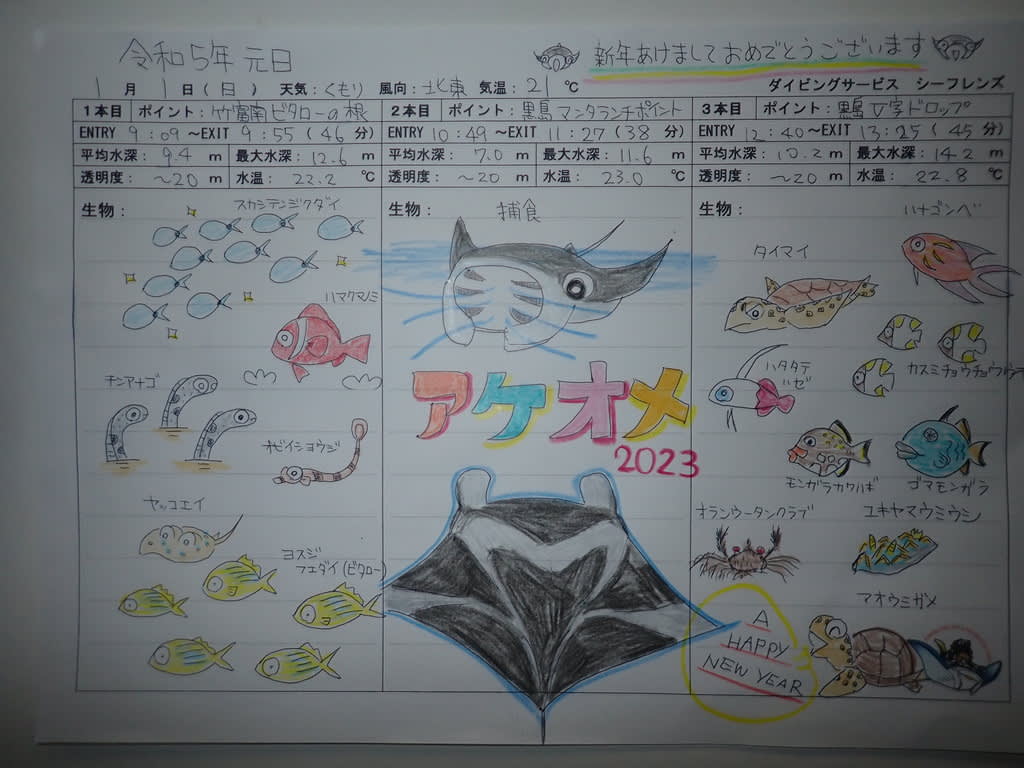 令和5年 元日
新年あけましておめでとうございます
1月 1日(日) 天気:くもり 風向:北東 気温:21℃ ダイビングサービス シーフレンズ
1本目 ポイント:竹富南ビタローの根
ENTRY 9:09~EXIT 9:55(46分)
平均水深:9.4 m 最大水深:12.6 m
透明度:~20 m 水温:22.2 ℃
生物:
スカシテンジクダイ
ハマクマノミ
チンアナゴ
オビイシヨウジ
ヤッコエイ
ヨスジ
フエダイ(ビタロー)
2本目 ポイント:黒島マンタランチポイント
ENTRY 10:49~EXIT 11:27(38分)
平均水深:7.0 m 最大水深:11.6 m
透明度:~20 m 水温:23.0 ℃
生物:
捕食
アケオメ
2023
3本目 ポイント:黒島V字ドロップ
ENTRY 12:40~EXIT 13:25(45分)
平均水深:10.2 m 最大水深:14.2 m
透明度:~20 m 水温:22.8 ℃
生物:
ハナゴンベ
タイマイ
カスミチョウチョウウオ
ハタタテ
ハゼ
モンガラカワハギ
ゴマモンガラ
オランウータンクラブ
ユキヤマウミウシ
アオウミガメ
A
HAPPY
NEW YEAR